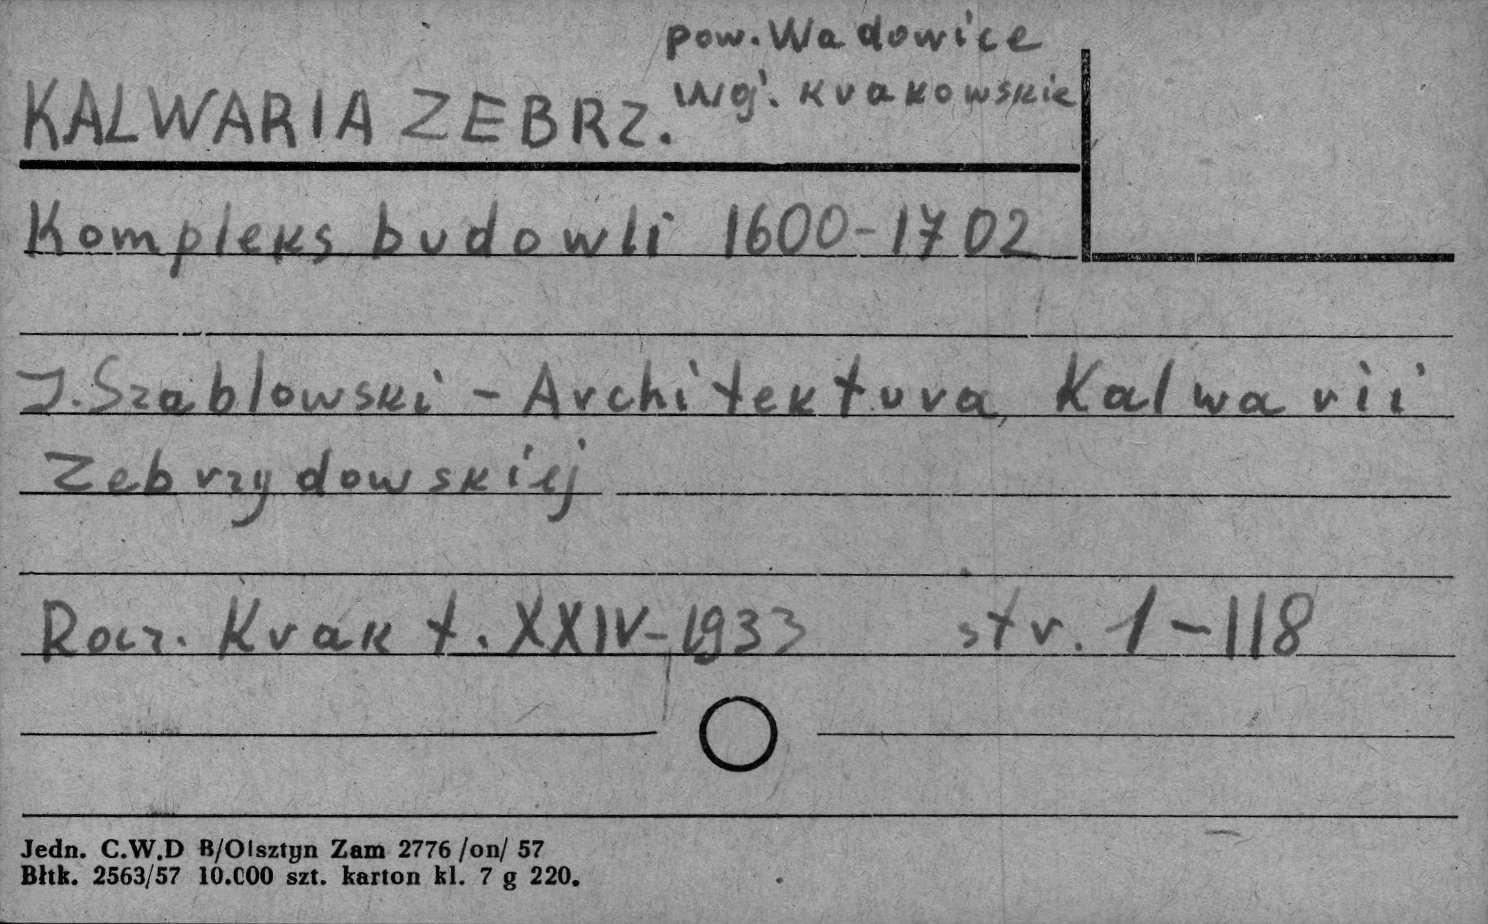 pow. Wadowice
KALWARIA ZEBRZ. woj. krakowskie
Kompleks budowli 1600-1702
J. Szablowski - Architektura Kalwarii
Zebrzydowskiej
Rocz. Krak t. XXIV-1933 str. 1-118
Jedn. C.W.D B/Olsztyn Zam 2776 /on/ 57
Błtk. 2563/57 10.000 szt. karton kl. 7 g 220.